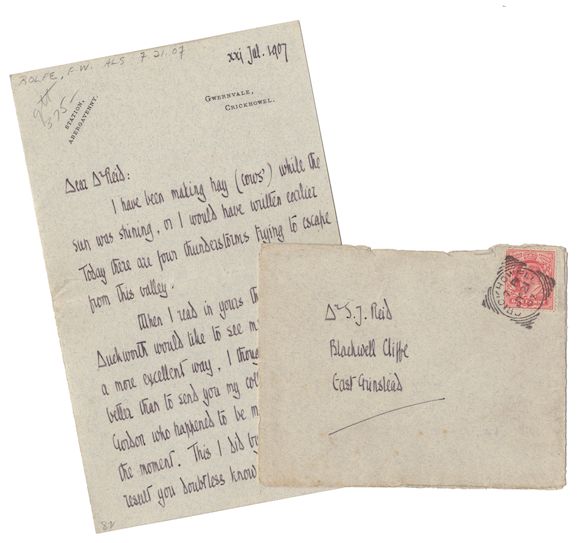 ROLFE, F.W. ALS 7 21.07
375-
STATION,
ABERGAVENNY.
xxj Jul. 1907
GWERNVALE,
CRICKHOWEL.
Dear Dr Reid:
I have been making hay (cows') while the
sun was shining, or I would have written earlier
Today there are four thunderstorms trying to escape
from this valley.
When I read in yours th
Duckworth would like to see m
a more excellent way, I thoug
better than to send you my
Gordon who happened to be m
the moment. This I did by
result you doubtless know
82
Dr S. J. Reid
Blackwell Cliffe
East Grinstead
CRICKHOWELL